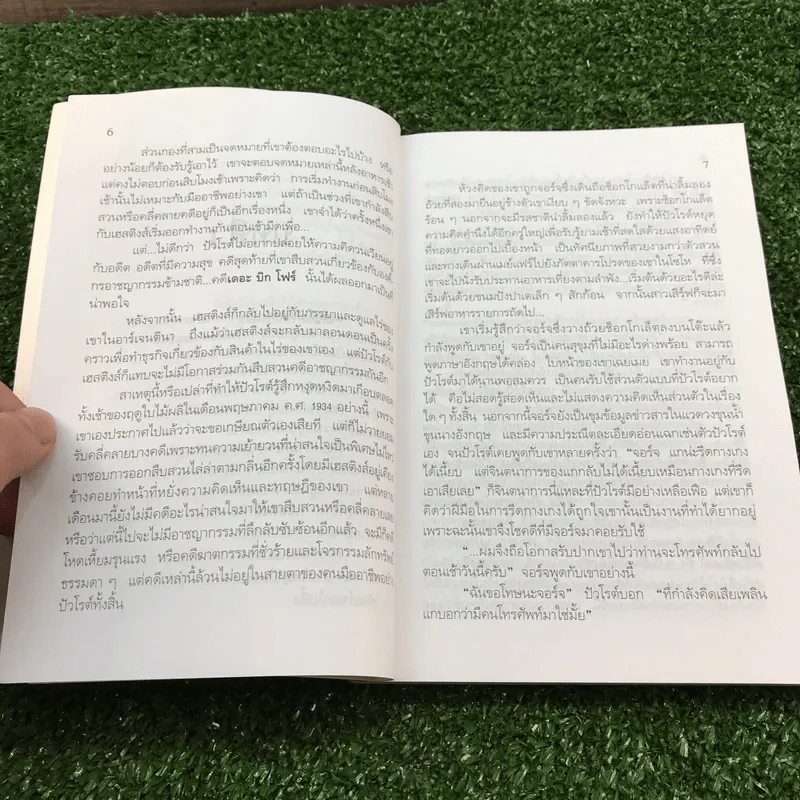 6
ส่วนกองที่สามเป็นจดหมายที่เขาต้องตอบอะไรไปบ้าง หรือ
อย่างน้อยก็ต้องรับรู้เอาไว้ เขาจะตอบจดหมายเหล่านี้หลังอาหารเช้า
แต่คงไม่ตอบก่อนสิบโมงเช้าเพราะคิดว่า การเริ่มทำงานก่อนสิบโมง
เช้านั้นไม่เหมาะกับมืออาชีพอย่างเขา แต่ถ้าเป็นช่วงที่เขากำลังสืบ
สวนหรือคลี่คลายคดีอยู่ก็เป็นอีกเรื่องหนึ่ง เขาจำได้ว่าครั้งหนึ่งเขา
กับเฮสติงส์เริ่มออกทำงานกันตอนเช้ามืดเพื่อ...
แต่...ไม่ดีกว่า ปัวโรต์ไม่อยากปล่อยให้ความคิดวนเวียนอยู่
กับอดีต อดีตที่มีความสุข คดีสุดท้ายที่เขาสืบสวนเกี่ยวข้องกับองค์
กรอาชญากรรมข้ามชาติ...คดีเดอะ บิก โฟร์ นั้นได้ผลออกมาเป็นที่
น่าพอใจ
หลังจากนั้น เฮสติงส์ก็กลับไปอยู่กับภรรยาและดูแลไร่ของ
เขาในอาร์เจนตินา ถึงแม้ว่าเฮสติงส์จะกลับมาลอนดอนเป็นครั้ง
คราวเพื่อทำธุรกิจเกี่ยวข้องกับสินค้าในไร่ของเขาเอง แต่ปัวโรต์กับ
เฮสติงส์ก็แทบจะไม่มีโอกาสร่วมกันสืบสวนคดีอาชญากรรมกันอีก
สาเหตุนี้หรือเปล่าที่ทำให้ปัวโรต์รู้สึกหงุดหงิดมาเกือบตลอด
ทั้งเช้าของฤดูใบไม้ผลิในเดือนพฤษภาคม ค.ศ. 1934 อย่างนี้ เพราะ
เขาเองประกาศไปแล้วว่าจะขอเกษียณตัวเองเสียที แต่ก็ไม่วายยอม
รับคลี่คลายบางคดีเพราะทนความเย้ายวนที่น่าสนใจเป็นพิเศษไม่ไหว
เขาชอบการออกสืบสวนไล่ล่าตามกลิ่นอีกครั้งโดยมีเฮสติงส์อยู่เคียง
ข้างคอยทำหน้าที่หยั่งความคิดเห็นและทฤษฎีของเขา แต่หลาย
เดือนมานี้ยังไม่มีคดีอะไรน่าสนใจมาให้เขาสืบสวนหรือคลี่คลายเลย
หรือว่าแต่นี้ไปจะไม่มีอาชญากรรมที่ลึกลับซับซ้อนอีกแล้ว จะมีก็คดี
โหดเหี้ยมรุนแรง หรือคดีฆาตกรรมที่ชั่วร้ายและโจรกรรมลักทรัพย์
ธรรมดา ๆ แต่คดีเหล่านี้ล้วนไม่อยู่ในสายตาของคนมืออาชีพอย่าง
ปัวโรต์ทั้งสิ้น
7
ห้วงคิดของเขาถูกจอร์จซึ่งเดินถือช็อกโกแล็ตที่น่าลิ้มลอง
ถ้วยที่สองมายืนอยู่ข้างตัวเขาเงียบ ๆ ขัดจังหวะ เพราะช็อกโกแล็ต
ร้อน ๆ นอกจากจะมีรสชาติน่าลิ้มลองแล้ว ยังทำให้ปัวโรต์หยุด
ความคิดคำนึงไว้อีกครู่ใหญ่เพื่อรับรู้ยามเช้าที่สดใสด้วยแสงอาทิตย์
ที่ทอดยาวออกไปเบื้องหน้า เป็นทัศนียภาพที่สวยงามกว่าตัวสวน
และทางเดินผ่านเมย์แฟร์ไปยังภัตตาคารโปรดของเขาในโซโห ที่ซึ่ง
เขาจะไปนั่งรับประทานอาหารเที่ยงตามลำพัง...เริ่มต้นด้วยอะไรดีล่ะ
เริ่มต้นด้วยขนมปังปาเตเล็ก ๆ สักก้อน จากนั้นสาวเสิร์ฟก็จะมา
เสิร์ฟอาหารรายการถัดไป...
เขาเริ่มรู้สึกว่าจอร์จซึ่งวางถ้วยช็อกโกเล็ตลงบนโต๊ะแล้ว
กำลังพูดกับเขาอยู่ จอร์จเป็นคนสุขุมที่ไม่มีอะไรด่างพร้อย สามารถ
พูดภาษาอังกฤษได้คล่อง ใบหน้าของเขาเฉยเมย เขาทำงานอยู่กับ
ปัวโรต์มาได้นานพอสมควร เป็นคนรับใช้ส่วนตัวแบบที่ปัวโรต์อยาก
ได้ คือไม่สอดรู้สอดเห็นและไม่แสดงความคิดเห็นส่วนตัวในเรื่อง
ใด ๆ ทั้งสิ้น นอกจากนี้จอร์จยังเป็นขุมข้อมูลข่าวสารในแวดวงขุนน้ำ
ขุนนางอังกฤษ และมีความประณีตละเอียดอ่อนเฉกเช่นตัวปัวโรต์
เอง จนปัวโรต์เคยพูดกับเขาหลายครั้งว่า “จอร์จ แกน่ะรีดกางเกง
ได้เนี้ยบ แต่จินตนาการของแกกลับไม่ได้เนี้ยบเหมือนกางเกงที่รีด
เอาเสียเลย” ก็จินตนาการนี่แหละที่ปัวโรต์มีอย่างเหลือเฟือ แต่เขาก็
คิดว่าฝีมือในการรีดกางเกงได้ถูกใจเขานั้นเป็นงานที่ทำได้ยากอยู่
เพราะฉะนั้นเขาจึงโชคดีที่มีจอร์จมาคอยรับใช้
“...ผมจึงถือโอกาสรับปากเขาไปว่าท่านจะโทรศัพท์กลับไป
ตอนเช้าวันนี้ครับ” จอร์จพูดกับเขาอย่างนี้
“ฉันขอโทษนะจอร์จ” ปัวโรต์บอก “ที่กำลังคิดเสียเพลิน
แกบอกว่ามีคนโทรศัพท์มาใช่มั้ย”